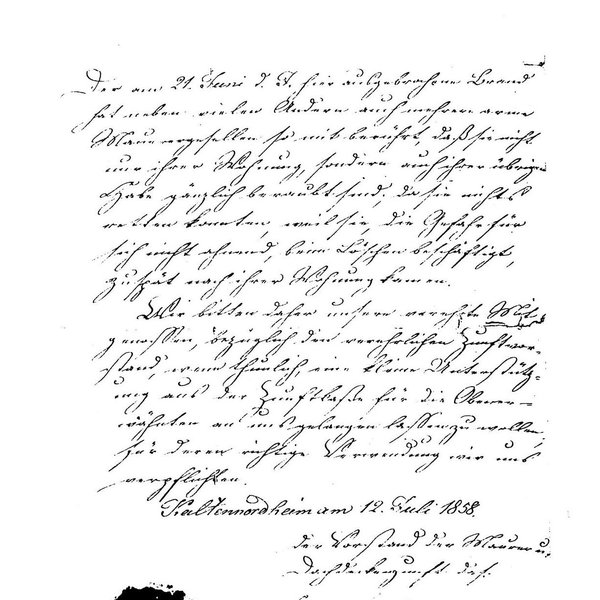 Der am 21. Juni d. J. hier ausgebrochene Brand
hat neben vielen Andern auch mehrere arme
Maurergesellen so mit berührt, daß sie nicht
nur ihrer Wohnung, sondern auch ihrer übrigen
Habe gänzlich beraubt sind, da sie nichts
retten konnten, weil sie, die Gefahr für
sich nicht ahnend, beim Löschen beschäftigt,
zu spät nach ihrer Wohnung kamen.
Wir bitten daher unsere verehrte Mit
genossen, bezüglich den verehrlichen Zunftvor-
stand, wenn thunlich, eine kleine Unterstütz-
ung aus der Zunftkasse für die Obener-
wähnten an uns gelangen lassen zu wollen,
für deren richtige Verwendung wir uns
verpflichten.
Kaltennordheim am 12. Juli 1858.
der Vorstand der Maurer u.
Dachdeckerzunft das.